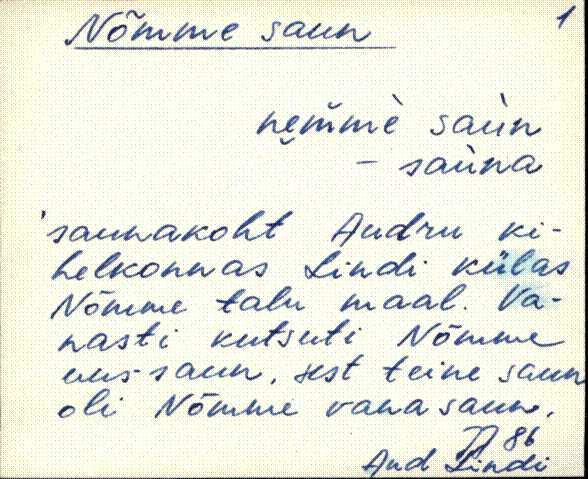 1
Nõmme saun
ne̬m̆mè saùn
– saùna
'saunakoht Audru ki-
helkonnas Lindi külas
Nõmme talu maal. Va-
nasti kutsuti Nõmme
uus-saun, sest teine saun
oli Nõmme vana saun.
86
Aud Lindi